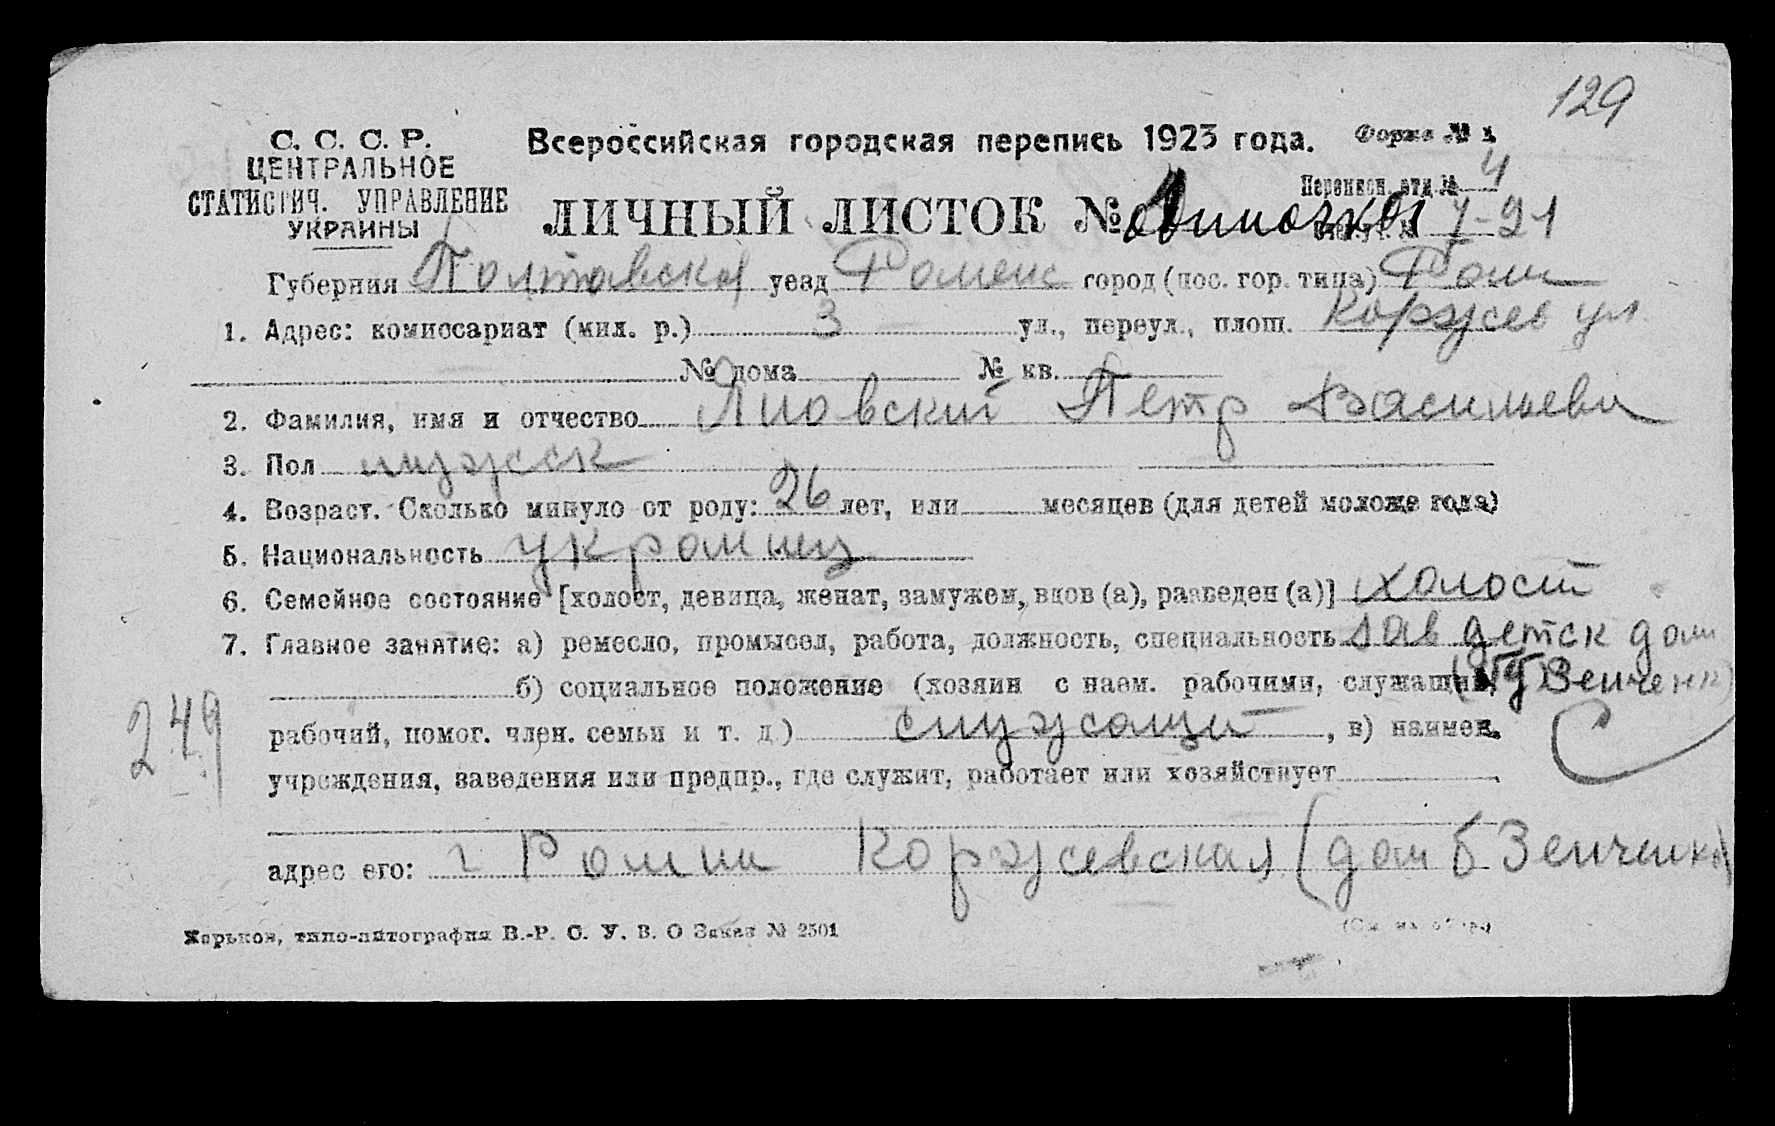 129
С. С. С. Р.
ЦЕНТРАЛЬНОЕ
СТАТИСТИЧ. УПРАВЛЕНИЕ
УКРАИНЫ
Всероссийская городская перепись 1923 года.
Форма № 1
Переписн. отд. № 4
ЛИЧНЫЙ ЛИСТОК №
7-21
Губерния Полтавска уезд Роменс город (пос. гор. типа) Ромн
1. Адрес: комиссариат (мил. р.) 3 ул., переул., площ. Коржев ул
№ дома № кв.
2. Фамилия, имя и отчество Петр Васильеви
3. Пол мужск
4. Возраст. Сколько минуло от роду: 26 лет, или месяцев (для детей моложе года)
5. Национальность украинц
6. Семейное состояние [холост, девица, женат, замужем, вдов (а), разведен (а)] холост
7. Главное занятие: а) ремесло, промысел, работа, должность, специальность Зав детск дом
б) социальное положение (хозяин с наем. рабочими, служащий, Зенченк)
249
рабочий, помог. член. семьи и т. д.) служащи, в) наимен.
С
учреждения, заведения или предпр., где служит, работает или хозяйствует
адрес его: г Ромни Коржевская (дом б Зенченко)
Харьков, типо-литография В.-Р. С. У. В. О Заказ № 2501
(См. на обор.)